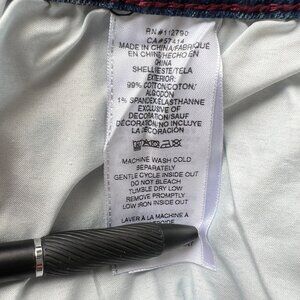 RN#112790
CA#57414
MADE IN CHINA/FABRIQUÉ
EN CHINE/HECHO EN
CHINA
SHELL/RESTE/TELA
EXTERIOR:
99% COTTON/COTON/
ALGODON
1% SPANDEX/ELASTHANNE
EXCLUSIVE OF
DECORATION/SAUF
DÉCORATION/NO INCLUYE
LA DECORACIÓN
MACHINE WASH COLD
SEPARATELY
GENTLE CYCLE INSIDE OUT
DO NOT BLEACH
TUMBLE DRY LOW
REMOVE PROMPTLY
LOW IRON INSIDE OUT
LAVER À LA MACHINE À